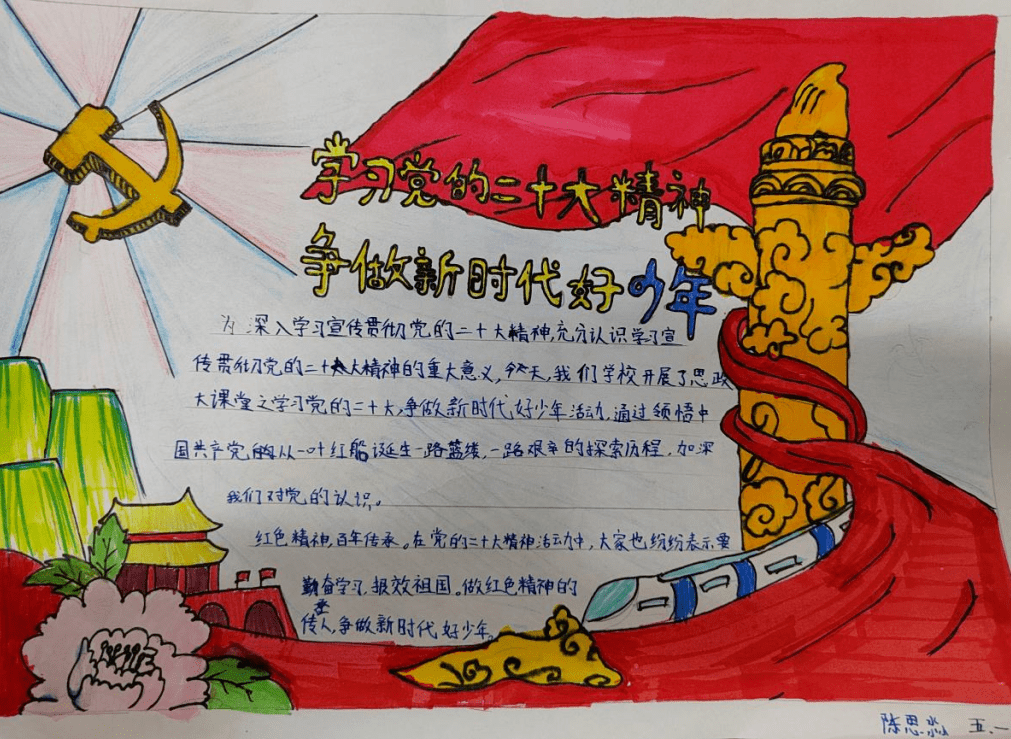 学习党的二十大精神
争做新时代好少年
为深入学习宣传贯彻党的二十大精神,充分认识学习宣
传贯彻党的二十大精神的重大意义,今天,我们学校开展了思政
大课堂之学习党的二十大,争做新时代好少年活动.通过领悟中
国共产党的从一叶红船诞生一路蓝缕,一路艰辛的探索历程,加深
我们对党的认识。
红色精神,百年传承。在党的二十大精神活动中,大家也纷纷表示要
勤奋学习,报效祖国。做红色精神的
传承人,争做新时代好少年。
陈思淼 五.一